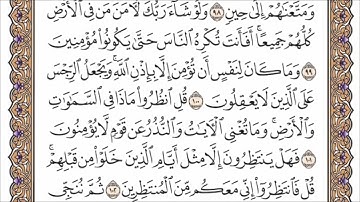 وَمَتَّعْنَٰهُمْ إِلَىٰ حِينٍ ۝٩٨ وَلَوْ شَآءَ رَبُّكَ لَءَامَنَ مَن فِى ٱلْأَرْضِ
كُلُّهُمْ جَمِيعًا ۚ أَفَأَنتَ تُكْرِهُ ٱلنَّاسَ حَتَّىٰ يَكُونُوا۟ مُؤْمِنِينَ
۝٩٩ وَمَا كَانَ لِنَفْسٍ أَن تُؤْمِنَ إِلَّا بِإِذْنِ ٱللَّهِ ۚ وَيَجْعَلُ ٱلرِّجْسَ
عَلَى ٱلَّذِينَ لَا يَعْقِلُونَ ۝١٠٠ قُلِ ٱنظُرُوا۟ مَاذَا فِى ٱلسَّمَٰوَٰتِ
وَٱلْأَرْضِ ۚ وَمَا تُغْنِى ٱلْءَايَٰتُ وَٱلنُّذُرُ عَن قَوْمٍ لَّا يُؤْمِنُونَ
۝١٠١ فَهَلْ يَنتَظِرُونَ إِلَّا مِثْلَ أَيَّامِ ٱلَّذِينَ خَلَوْا۟ مِن قَبْلِهِمْ ۚ
قُلْ فَٱنتَظِرُوٓا۟ إِنِّى مَعَكُم مِّنَ ٱلْمُنتَظِرِينَ ۝١٠٢ ثُمَّ نُنَجِّى